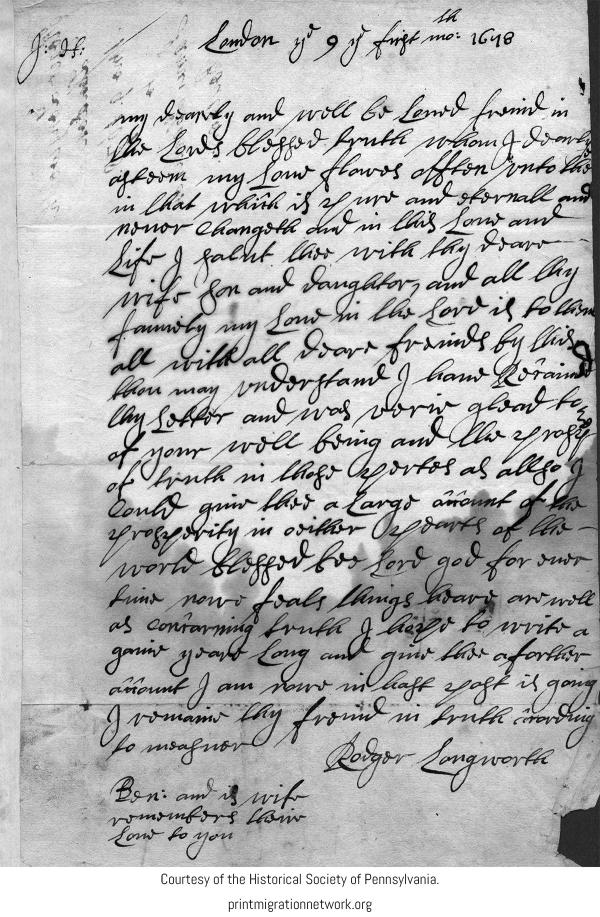 J: ds:
London ye 9 ye first mo:th 1678
my dearly and well be Loved freind in
the Lords blessed truth whom J dearly
asteem my Love flowes offten vnto thee
in that which is pure and eternall and
never Changeth and in this Love and
Life J salut thee with thy deare
wife son and daughter, and all thy
famiely my Love in the Lord is to them
all with all deare freinds by this
thou may vnderstand J have Recaived
thy Letter and was verie glead to
of your well being and the prosp
of truth in those pertes as allso J
Could give thee a Large account of the
prosperity in oeither pearts of the
world blessed bee Lord god for ever
time nowe feals things heare are well
as concarning truth J hope to write a
gaine yeare Long and give thee a forther
account J am nowe in hast post is going
J remaine thy freind in truth acording
to measuer
Rodger Longworth
Ben: and is wife
remembers theire
Love to you
Courtesy of the Historical Society of Pennsylvania.
printmigrationnetwork.org